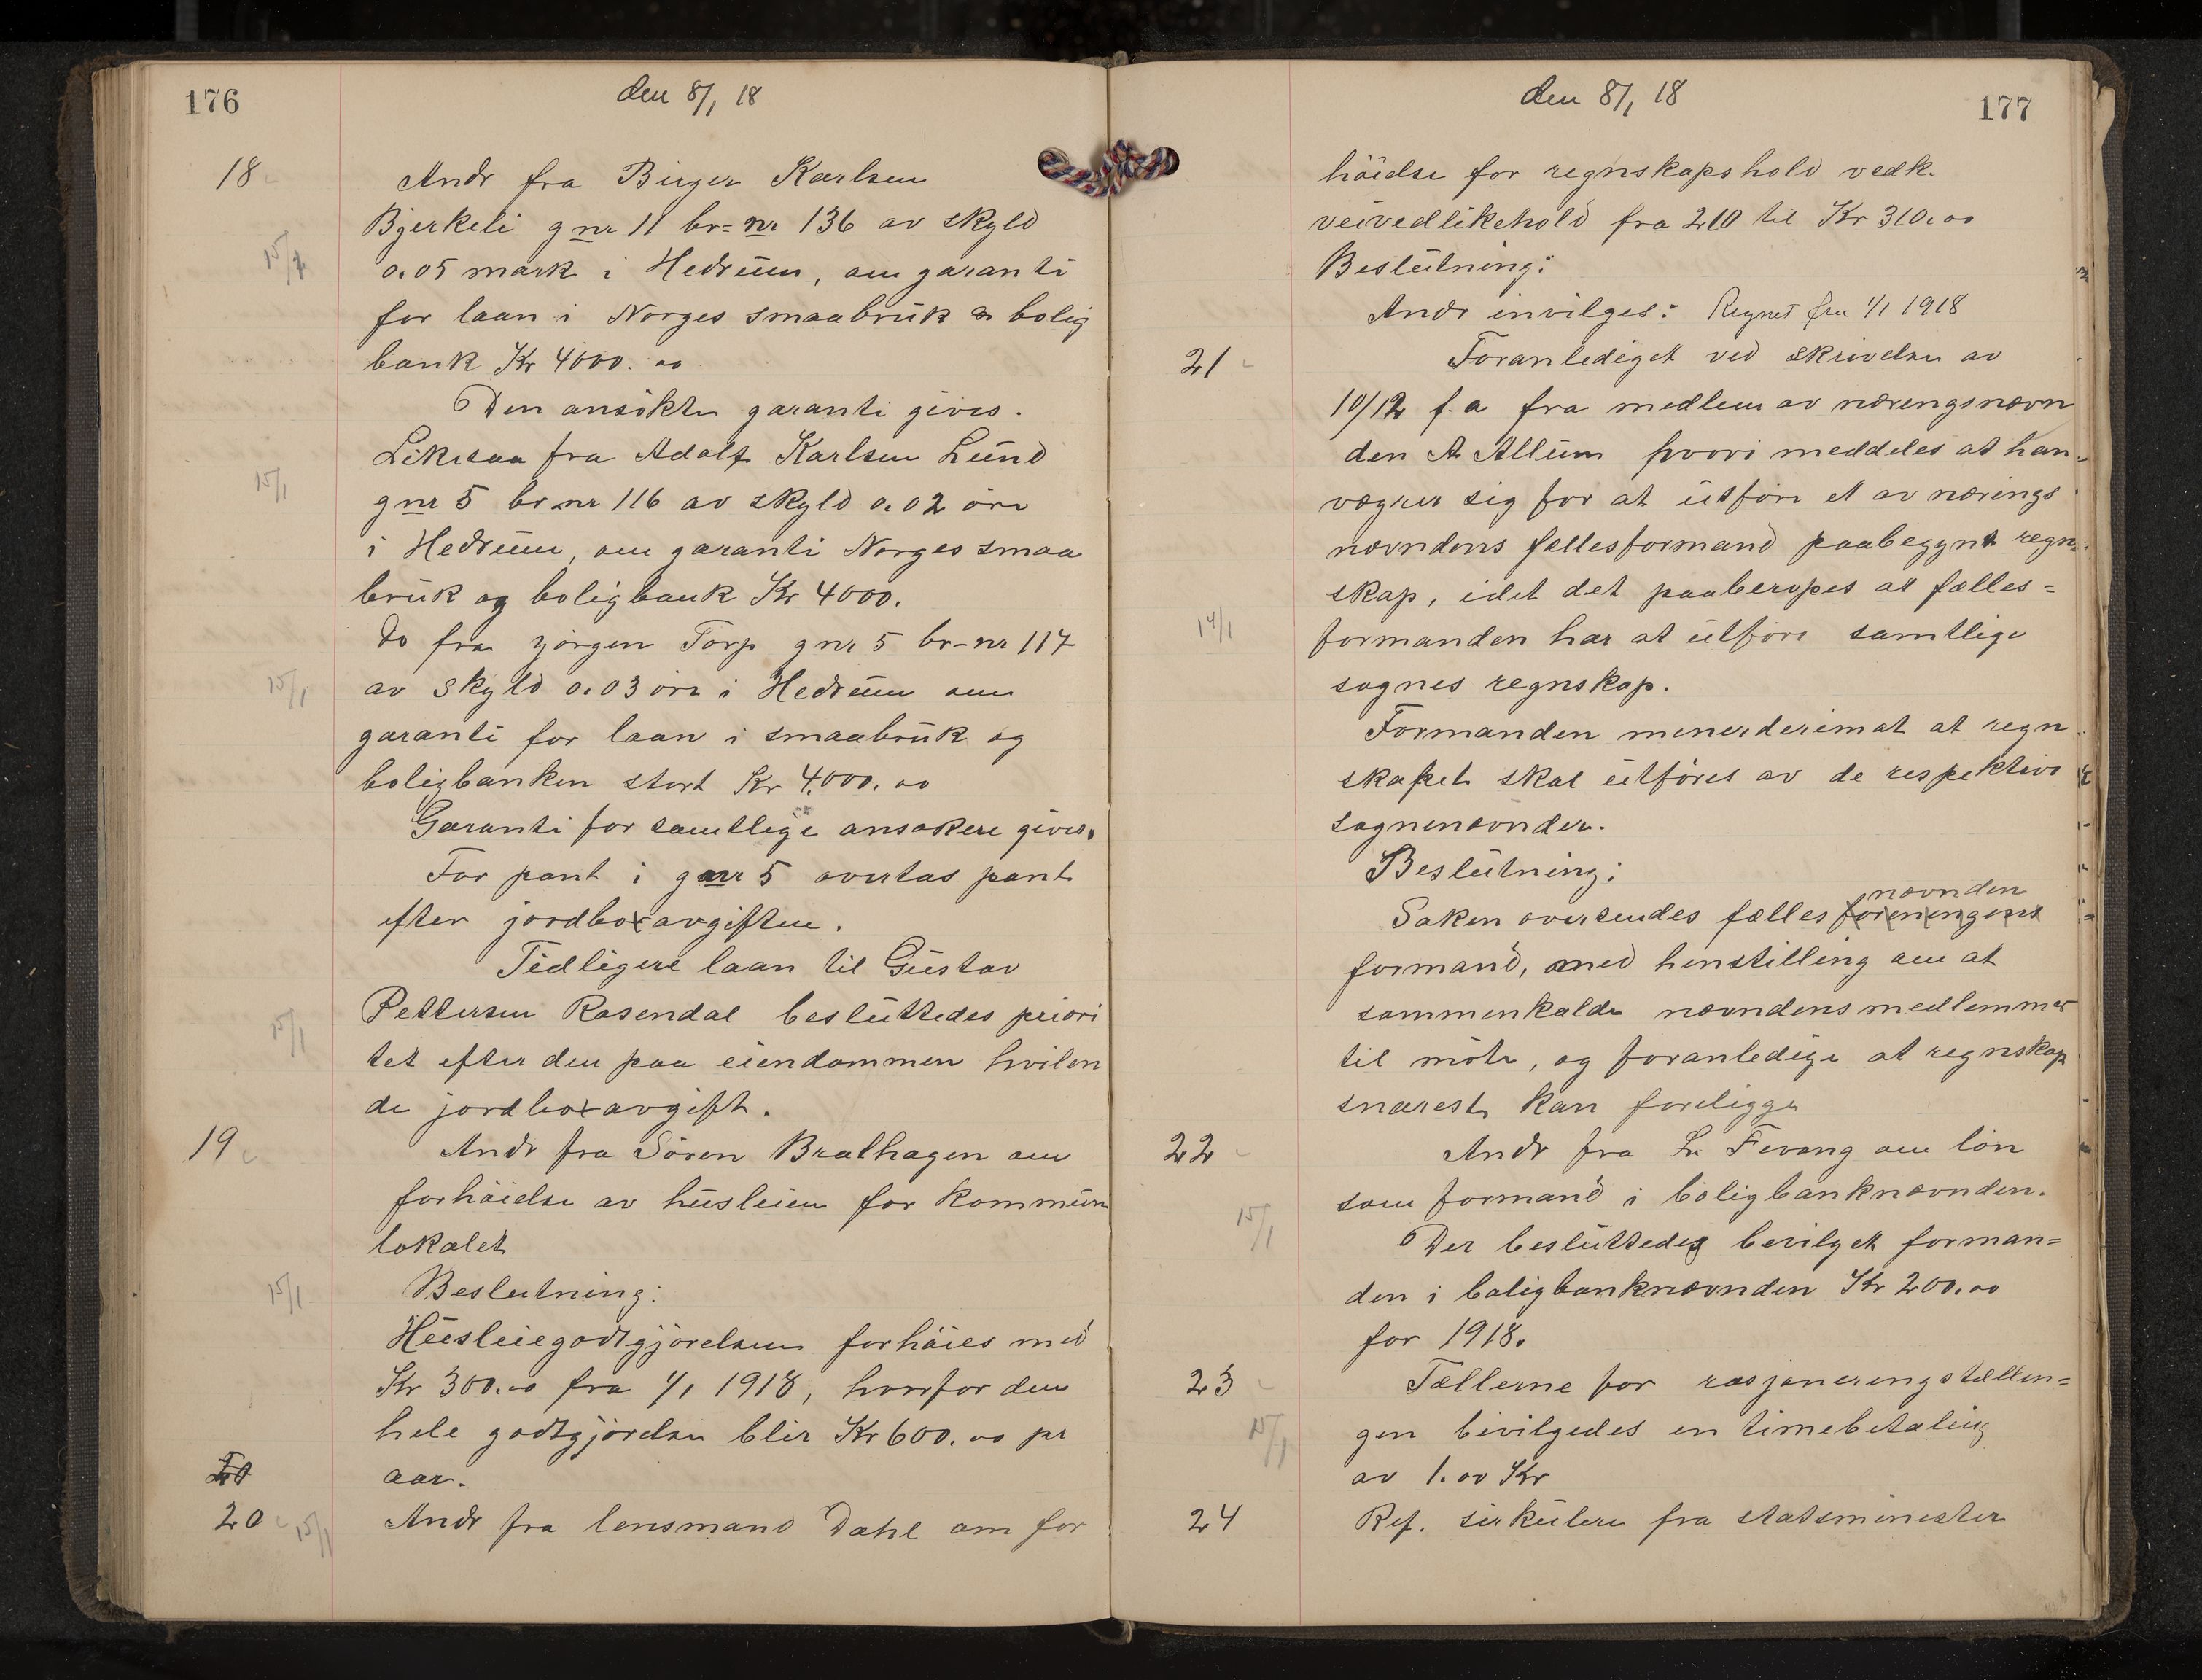 176
den 8/1 18
18
Andr fra Birger Karlsen
Bjerkeli gnr 11 br=nr 136 av skyld
15/1
0.05 mark i Hedrum, om garanti
for laan i Norges smaabruk & bolig
bank Kr 4000.00
Den ansökte garanti gives.
Likesaa fra Adolf Karlsen Lund
15/1
gnr 5 br.nr 116 av skyld 0.02 öre
i Hedrum, om garanti Norges smaa
bruk og boligbank Kr 4000.
do fra Jörgen Torp gnr 5 br-nr 117
15/1
av skyld 0.03 öre i Hedrum om
garanti for laan i smaabruk og
boligbanken stort Kr 4.000.00
Garanti for samtlige ansökere gives.
For pant i gnr 5 overtas pant
efter jordboxavgiften.
Tidligere laan til Gustav
Pettersen Rosendal besluttedes priori
15/1
tet efter den paa eiendommen hvilen
de jordboxavgift.
19
Andr fra Sören Bralhagen om
forhöielse av husleien for kommun
lokalet
15/1
Beslutning:
Husleiegodtgjörelsen forhöies med
Kr 300.00 fra 1/1 1918, hvorfor den
hele godtgjörelse blir Kr 600.00 pr
20
aar.
20
15/1
Andr fra lensmand Dahl om for
den 8/1 18
177
höielse for regnskapshold vedk.
veivedlikehold fra 210 til Kr 310.00
Beslutning:
Andr invilges: Regnet fra 1/1 1918
21
Foranlediget ved skrivelse av
10/12 f.a fra medlem av næringsnævn
den A. Allum hvori meddeles at han
vægrer sig for at utföre et av nærings
nævndens fællesformand paabegynt regn
skap, idet det paaberopes at fælles=
14/1
formanden har at utföre samtlige
sognes regnskap.
Formanden mener derimot at regn
skapet skal utföres av de respektive
sognenævnder.
Beslutning:
nævnden
Saken oversendes fælles foreningens
formand, med henstilling om at
sammenkalde nævndens medlemmer
til möte, og foranledige at regnskap
snarest kan foreligge
22
Andr fra L. Fevang om lön
som formand i boligbanknævnden.
15/1
Der besluttedes bevilget forman=
den i boligbanknævnden Kr 200.00
for 1918.
23
Tællerne for rasjoneringstællin=
15/1
gen bevilgedes en timebetaling
av 1.00 Kr
24
Ref. sirkulere fra statsminister